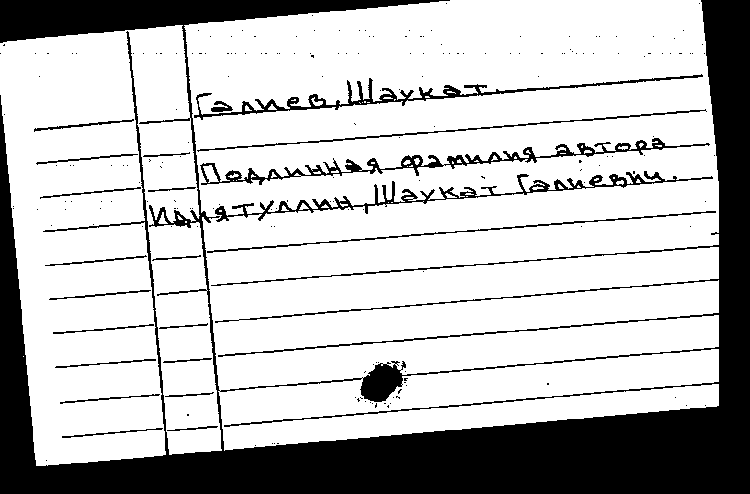 Галиев, Шаукат.
Подлинная фамилия автора
Идиятуллин, Шаукат Галиевич.